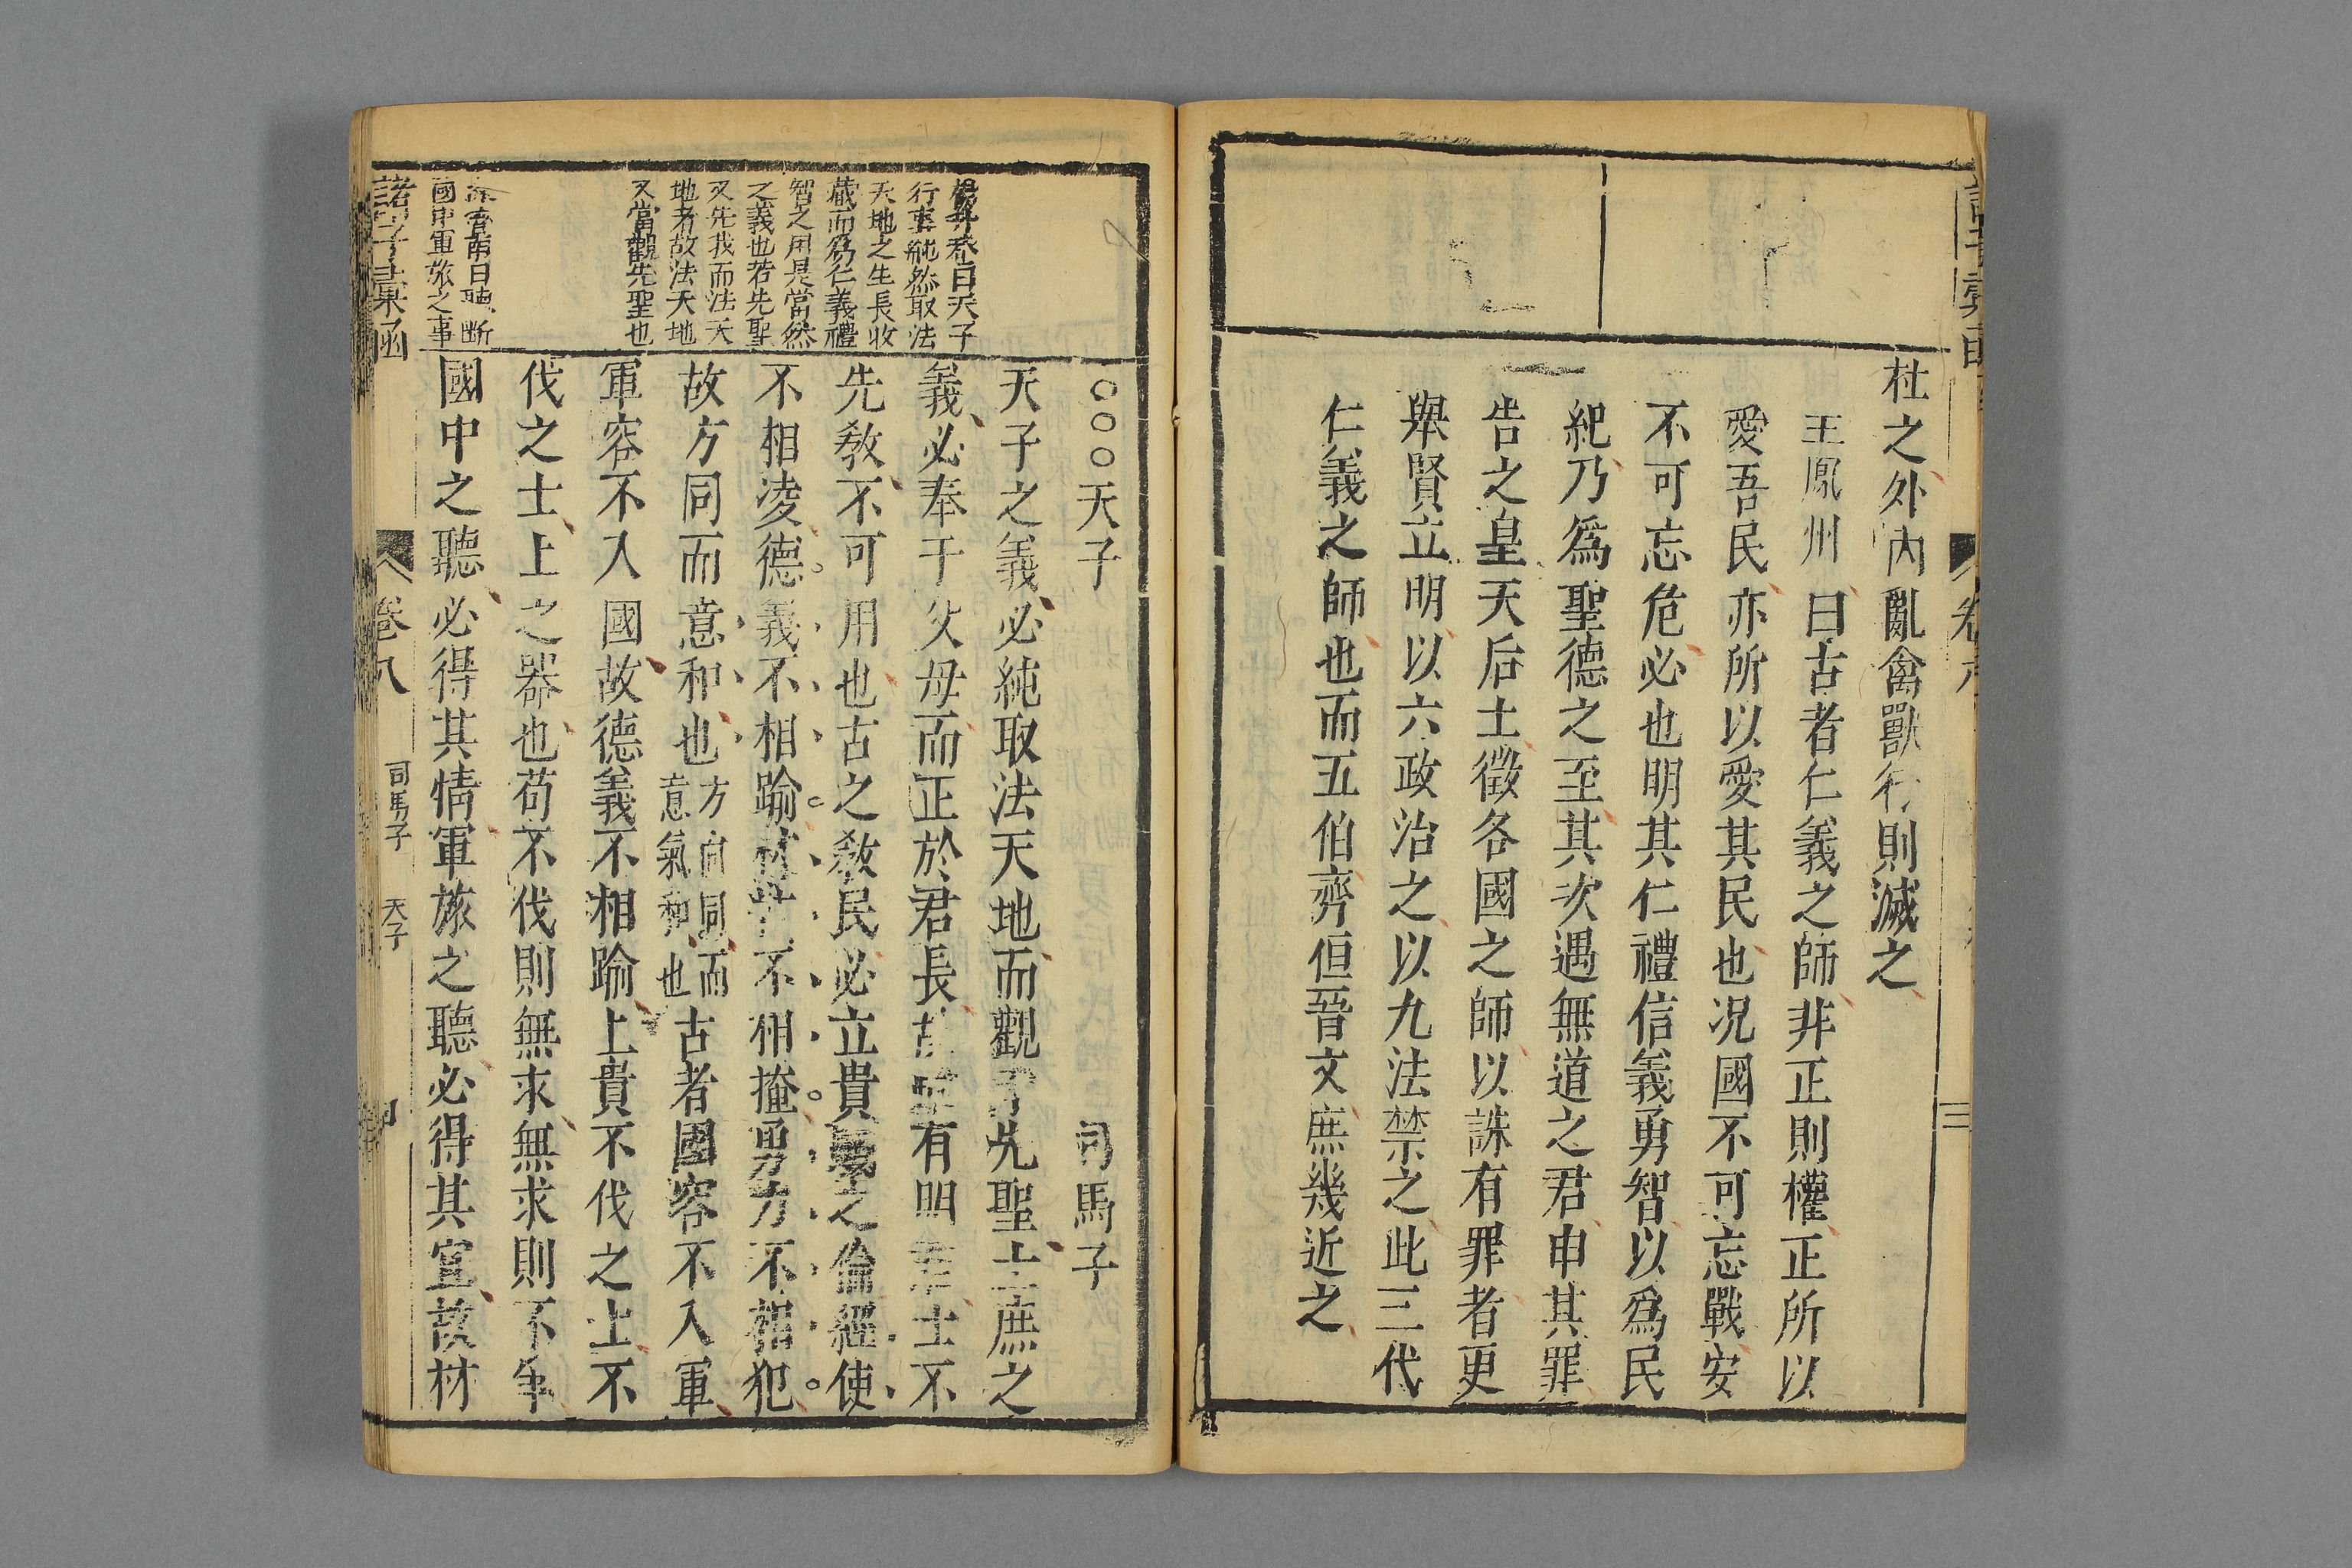 杜之外內亂禽獸行則滅之
王鳳州曰古者仁義之師非正則權正所以
愛吾民亦所以愛其民也况國不可忘戰安
不可忘危必也明其仁禮信義勇智以為民
紀乃為聖德之至其次遇無道之君申其罪
告之皇天后土徵各國之師以誅有罪者更
舉賢立明以六政治之以九法禁之此三代
仁義之師也而五伯齊但晉文庶幾近之
三
○○○天子 司馬子
天子之義必純取法天地而觀于先聖士庶之
義必奉于父母而正於君長故雖有明君士不
先教不可用也古之教民必立貴賤之倫經使
不相凌德義不相踰材技不相掩勇力不相犯
故方同而意和也方向同而意氣和也古者國容不入軍
軍容不入國故德義不相踰上貴不伐之士不
伐之士上之器也苟不伐則無求無求則不爭
國中之聽必得其情軍旅之聽必得其宜故材
曰天子
行事純然取法
天地之生長收
藏而為仁義禮
智之用是當然
之義也若先聖
又先我而法天
地者故法天地
又當觀先聖也
曰聽斷
國中軍旅之事
諸子彙函 卷八 司馬子 天子